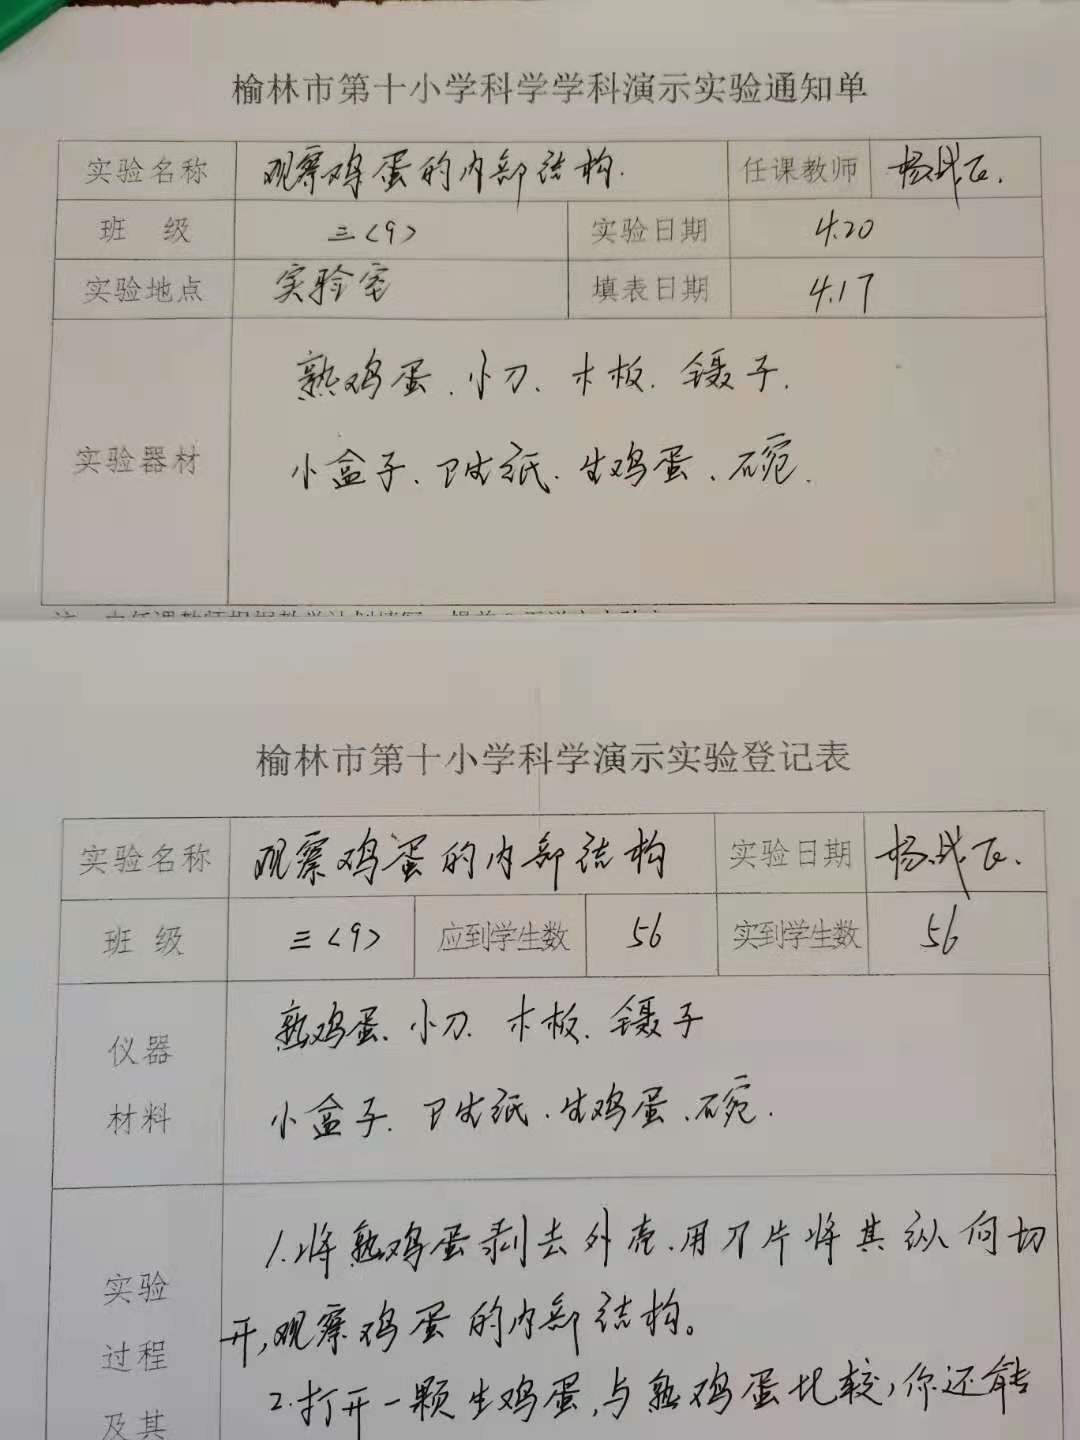 榆林市第十小学科学学科演示实验通知单
实验名称 观察鸡蛋的内部结构. 任课教师 杨战飞.
班 级 三<9> 实验日期 4.20
实验地点 实验室 填表日期 4.17
熟鸡蛋.小刀.木板.镊子.
实验器材
小盒子.卫生纸.生鸡蛋、碗.
榆林市第十小学科学演示实验登记表
实验名称 观察鸡蛋的内部结构 实验日期 杨战飞.
班 级 三<9> 应到学生数 56 实到学生数 56
熟鸡蛋.小刀.木板.镊子
仪器
材料
小盒子.卫生纸.生鸡蛋.碗.
1.将熟鸡蛋剥去外壳.用刀片将其纵向切
实验
开,观察鸡蛋的内部结构。
过程
2.打开一颗生鸡蛋,与熟鸡蛋比较,你还能
及其